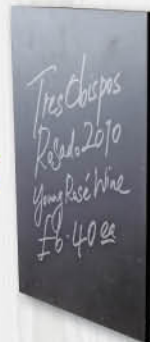 Tres Obispos
Rosado 2010
Young Rosé Wine
£6.40 ea